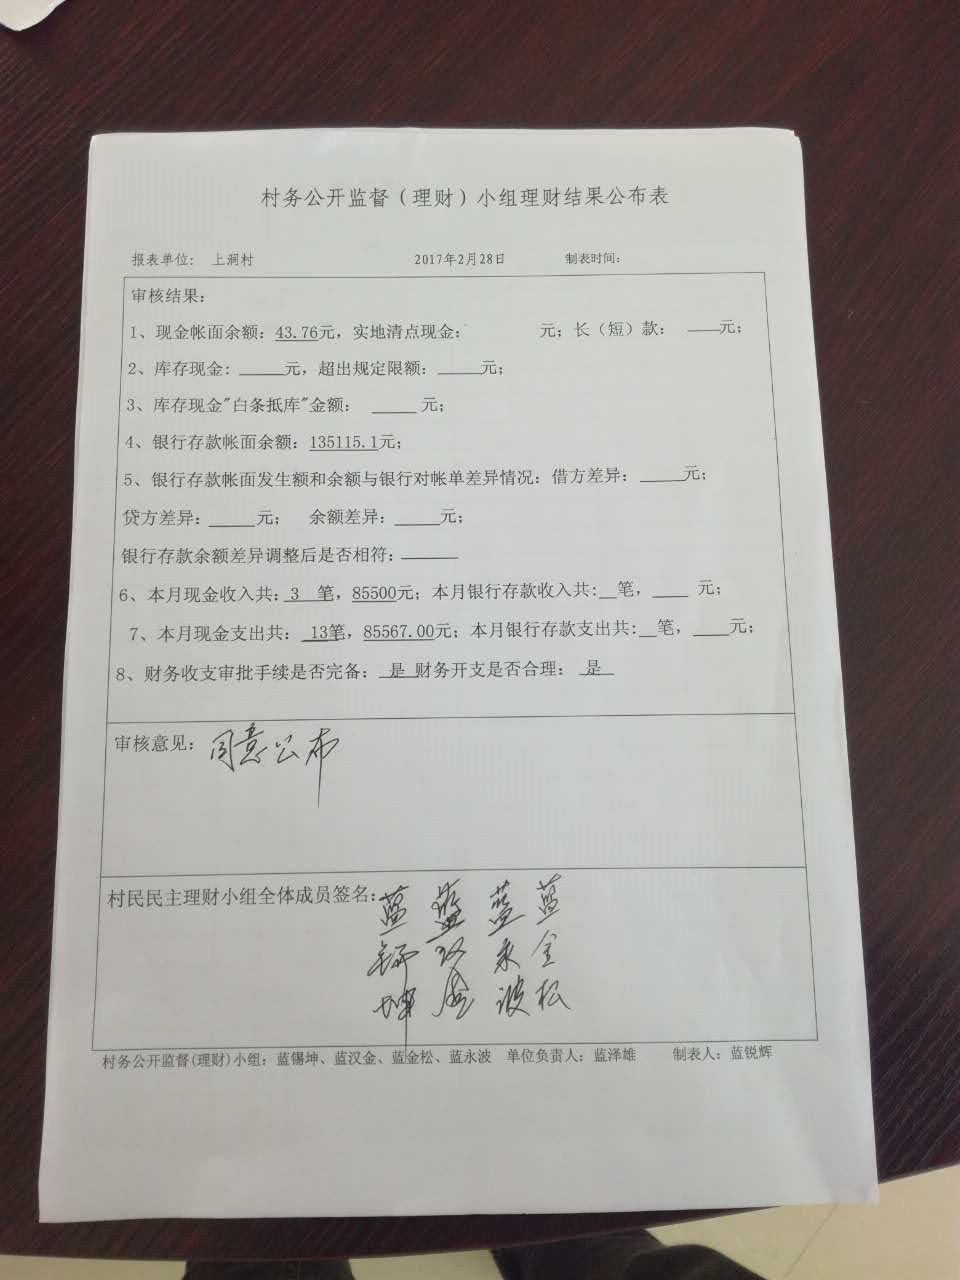 村务公开监督（理财）小组理财结果公布表
报表单位: 上涧村 2017年2月28日 制表时间:
审核结果:
1、现金帐面余额: 43.76元, 实地清点现金: 元; 长（短）款: ___元;
2、库存现金: ____元, 超出规定限额: ____元;
3、库存现金"白条抵库"金额: ____ 元;
4、银行存款帐面余额: 135115.1元;
5、银行存款帐面发生额和余额与银行对帐单差异情况: 借方差异: ____元;
贷方差异: ____元; 余额差异: ____元;
银行存款余额差异调整后是否相符: _____
6、本月现金收入共: 3 笔, 85500元; 本月银行存款收入共: __笔, ___ 元;
7、本月现金支出共: 13笔, 85567.00元; 本月银行存款支出共: __笔, ___元;
8、财务收支审批手续是否完备: 是 财务开支是否合理: 是
审核意见: 同意公布
村民民主理财小组全体成员签名: 蓝 蓝 蓝 蓝
永 金
坤 波 松
村务公开监督(理财)小组: 蓝锡坤、蓝汉金、蓝金松、蓝永波 单位负责人: 蓝泽雄 制表人: 蓝锐辉